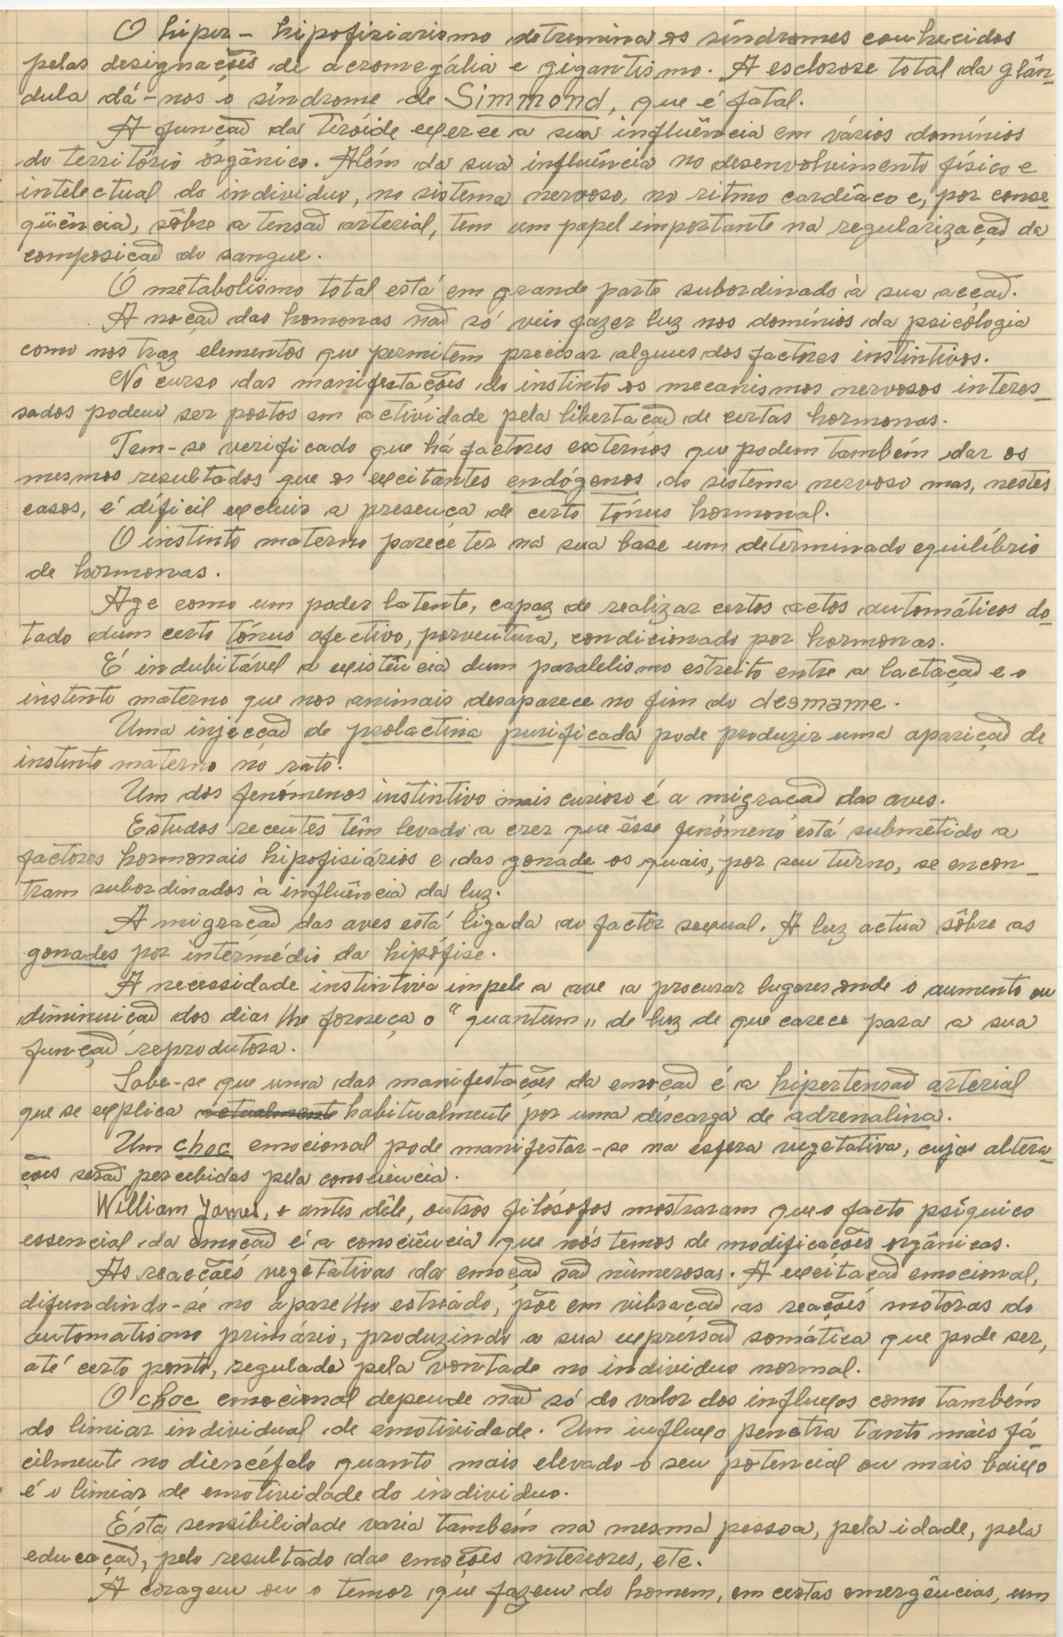 O hiper-hipofisiarismo determina os síndromes conhecidos
pelas designações de acromegália e gigantismo. A esclorose total da glân-
dula dá-nos o síndrome de Simmond, que é fatal.
A função da tiróide exerce a sua influência em vários domínios
do território orgânico. Além da sua influência no desenvolvimento físico e
intelectual do individuo, no sistema nervoso, no ritmo cardíaco e, por conse-
qüência, sôbre a tensão arterial, tem um papel importante na regularização da
composição do sangue.
O metabolismo total está em grande parte subordinado à sua acção.
A noção das homonas não só veio fazer luz nos domínios da psicologia
como nos traz elementos que permitem precisar alguns dos factores instintivos.
No curso das manifestações do instinto os mecanismos nervosos interes-
sados podem ser postos em actividade pela libertação de certas hormonas.
Tem-se verificado que há factores externos que podem também dar os
mesmos resultados que os excitantes endógenos do sistema nervoso mas, nestes
casos, é difícil excluir a presença de certo tónus hormonal.
O instinto materno parece ter na sua base um determinado equilíbrio
de hormonas.
Age como um poder latente, capaz de realizar certos actos automáticos do-
tado dum certo tónus afectivo, porventura, condicionado por hormonas.
É indubitável a existência dum paralelismo estreito entre a lactação e o
instinto materno que nos animais desaparece no fim do desmame.
Uma injecção de prolactina purificada pode produzir uma aparição de
instinto materno no rato.
Um dos fenómenos instintivo mais curioso é a migração das aves.
Estudos recentes têm levado a crer que êsse fenómeno está submetido a
factores hormonais hipofisiários e das gonade os quais, por seu turno, se encon-
tram subordinados à influência da luz.
A migração das aves está ligada ao factor sexual. A luz actua sôbre as
gonades por intermédio da hipófise.
A necessidade instintiva impele a ave a procurar lugares onde o aumento ou
diminuição dos dias lhe forneça o "quantum" de luz de que carece para a sua
função reprodutora.
Sabe-se que uma das manifestações da emoção é a hipertensão arterial
que se explica actualmente habitualmente por uma descarga de adrenalina.
Um choc emocional pode manifestar-se na esfera vegetativa, cujas altera-
ções serão percebidas pela consciencia.
William James, e antes dêle, outros filósofos mostraram que o facto psíquico
essencial da emoção é a consciência que nós temos de modificações orgânicas.
As reacções vegetativas da emoção são numerosas. A excitação emocional,
difundindo-se no aparelho estriado, põe em vibração as reações motoras do
automatismo primário, produzindo a sua expressão somática que pode ser,
até certo ponto, regulada pela vontade no individuo normal.
O choc emocional depende não só do valor dos influxos como também
do limiar individual de emotividade. Um influxo penetra tanto mais fá
cilmente no diencéfalo quanto mais elevado o seu potencial ou mais baixo
é o limiar de emotividade do individuo.
Esta sensibilidade varia também na mesma pessoa, pela idade, pela
educação, pelo resultado das emoções anteriores, etc.
A coragem ou o temor que fazem do homem, em certas emergências, um